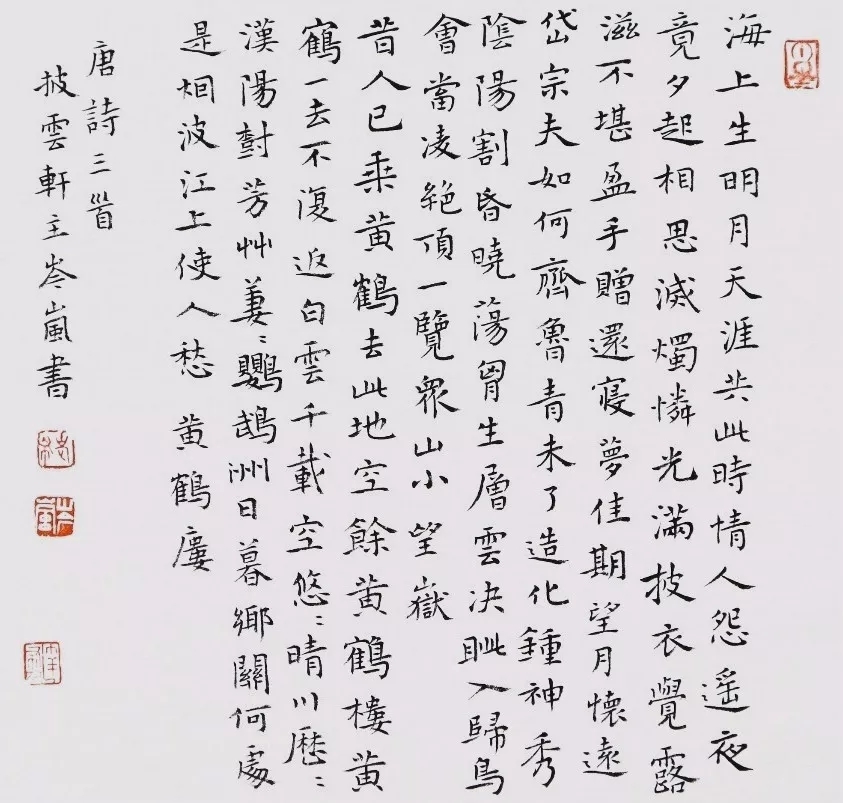 海上生明月天涯共此時情人怨遥夜
竟夕起相思滅燭憐光滿披衣覺露
滋不堪盈手贈還寢夢佳期望月懷遠
岱宗夫如何齊魯青未了造化鍾神秀
陰陽割昏曉蕩胷生層雲决眦入歸鳥
會當凌絕頂一覽眾山小望嶽
昔人已乘黃鶴去此地空餘黃鶴樓黃
鶴一去不復返白雲千載空悠〻晴川歷〻
漢陽樹芳艸萋〻鸚鵡洲日暮鄉關何處
是烟波江上使人愁 黃鶴樓
唐詩三首
披雲軒主岑嵐書